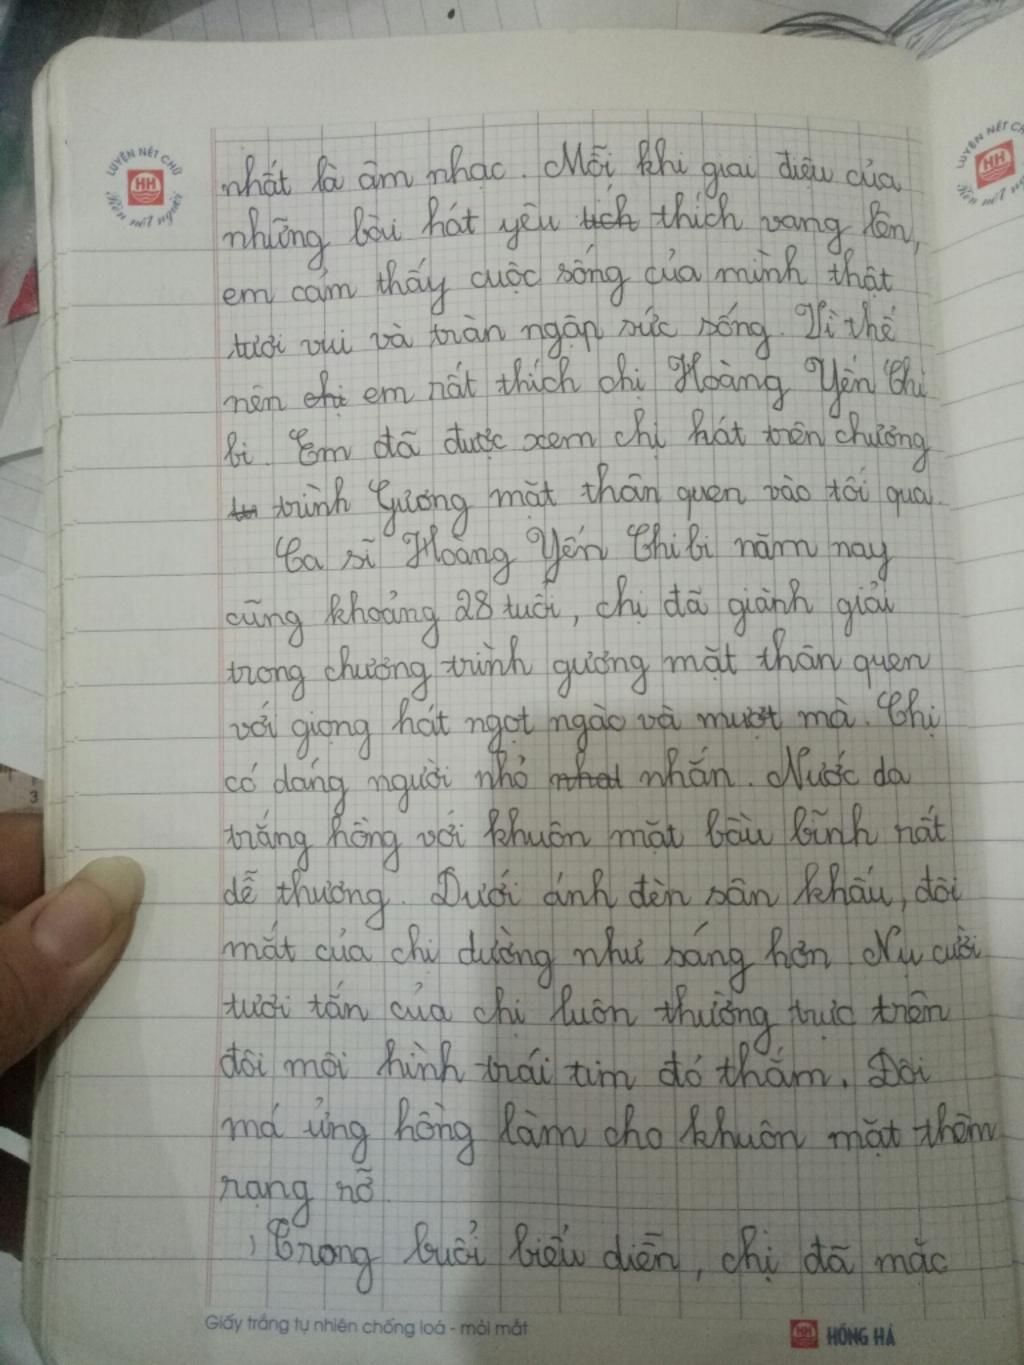 LUYỆN NÉT CHỮ
HH
Rèn nết người
LUYỆN NÉT CHỮ
HH
Rèn nết người
nhất là âm nhạc. Mỗi khi giai điệu của
những bài hát yêu tích thích vang lên,
em cảm thấy cuộc sống của mình thật
tươi vui và tràn ngập sức sống. Vì thế
nên chị em rất thích chị Hoàng Yến Chi
bi. Em đã được xem chị hát trên chương
trình Gương mặt thân quen vào tối qua.
Ca sĩ Hoàng Yến Chibi năm nay
cũng khoảng 28 tuổi, chị đã giành giải
trong chương trình gương mặt thân quen
với giọng hát ngọt ngào và mượt mà. Chị
có dáng người nhỏ nhắn. Nước da
trắng hồng với khuôn mặt bầu bĩnh rất
dễ thương. Dưới ánh đèn sân khấu, đôi
mắt của chị dường như sáng hơn. Nụ cười
tươi tắn của chị luôn thường trực trên
đôi môi hình trái tim đỏ thắm. Đôi
má ửng hồng làm cho khuôn mặt thêm
rạng rỡ.
Trong buổi biểu diễn, chị đã mặc
Giấy trắng tự nhiên chống loá - mỏi mắt
HỒNG HÀ
3